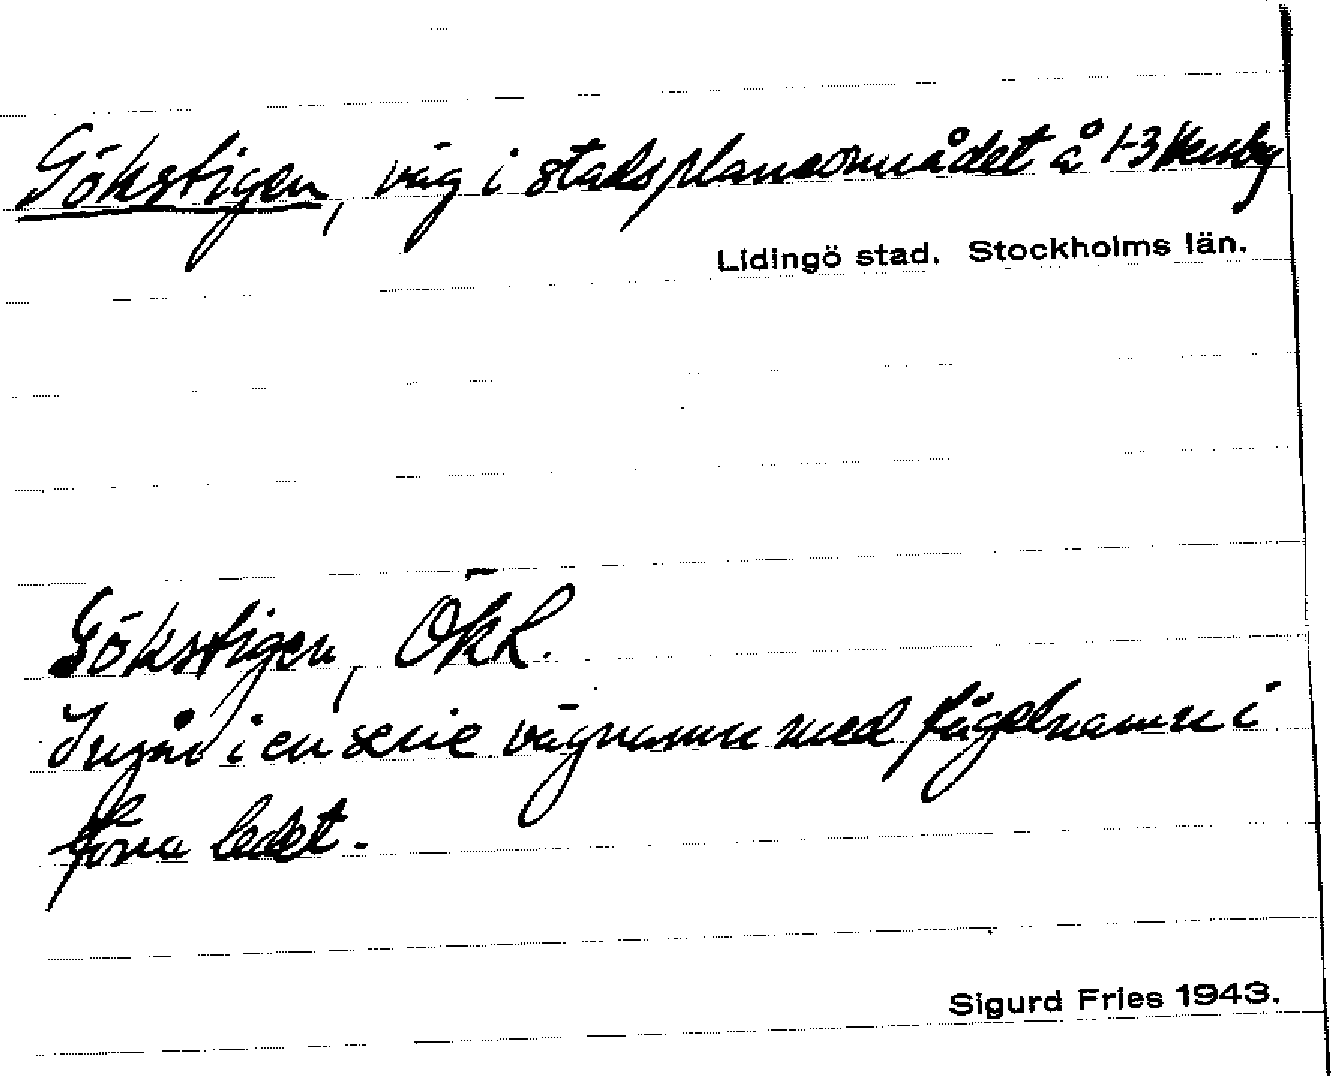 Gökstigen, väg i stadsplaneområdet å 1-3 Hersby
Lidingö stad. Stockholms län.
Gökstigen, ÖkL.
Ingår i en serie vägnamn med fågelnamn i
förra ledet.
Sigurd Fries 1943.